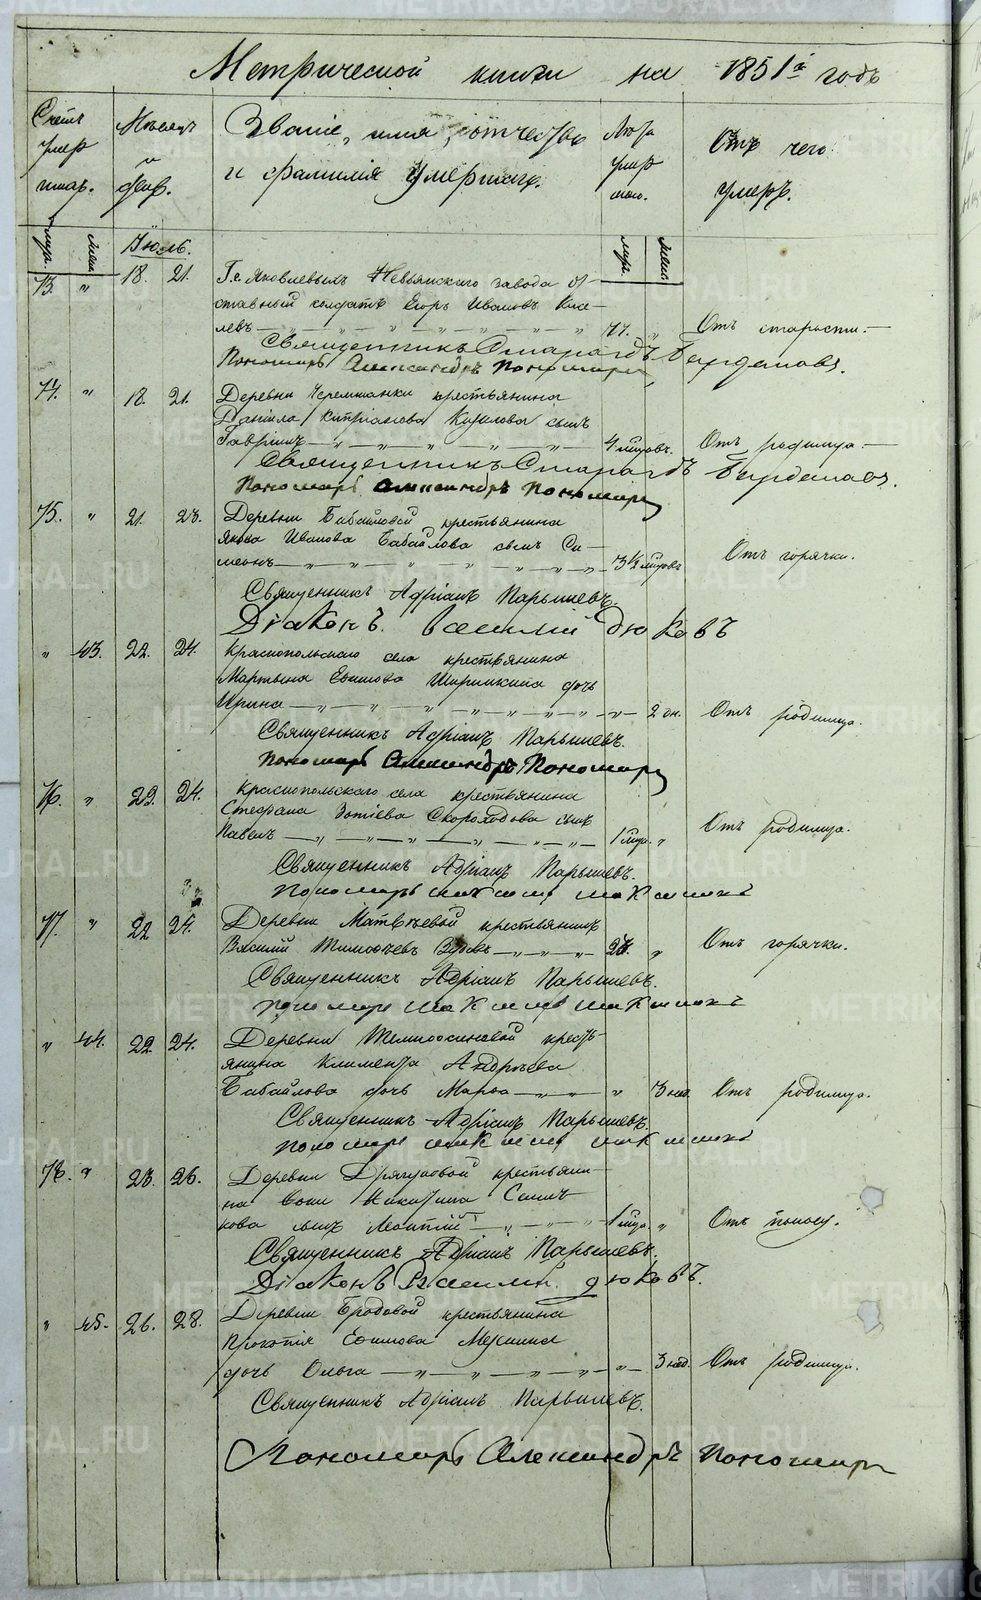 Метрической книги на 1851й годъ
Счетъ умерших.
Месяцъ и день.
Званіе, имя, отчество
и фамилія умершаго.
Лета умершаго.
Отъ чего
умеръ.
муж.
жен.
Іюль.
муж.
жен.
73. " 18. 21. Г.г. Яковлевыхъ Невьянскаго завода от-
ставный солдатъ Егоръ Ивановъ
левъ — " — " — " — 77. " Отъ старости.—
Священникъ Смарагдъ Бирдановъ.
Пономарь Александръ Пономарев
74. " 18. 21. Деревни Черемшанки крестьянина
Даніила Кипріанова Кирилова сынъ
Гавріилъ — " — " — " — 4 мѣсяцовъ. Отъ родимца.—
Священникъ Смарагдъ Бирдановъ.
Пономарь Александръ Пономарев
75. " 21. 23. Деревни Бабайловой крестьянина
Якова Иванова Бабайлова сынъ Си-
меонъ — " — " — " — 3½ мѣсяцовъ Отъ горячки.
Священникъ Адріанъ Парышевъ.
Діаконъ Василий Дюковъ
" 43. 22. 24. Краснопольскаго села крестьянина
Мартына Ефимова Ширинкина дочь
Ирина — " — " — " — " — 2 дн. Отъ родимца.
Священникъ Адріанъ Парышевъ.
Пономарь Александръ Пономарев
76. " 22. 24. Краснопольскаго села крестьянина
Стефана Зотіева Скороходова сынъ
Павелъ — " — " — " — 1 мѣсяц. " Отъ родимца.
Священникъ Адріанъ Парышевъ.
Пономарь
77. " 22 24. Деревни Матвѣевой крестьянинъ
Василій Тимофѣевъ — " — " " Отъ горячки.
Священникъ Адріанъ Парышевъ.
Пономарь
" 44. 22. 24. Деревни Темноосиновой кресть-
янина Климента Андрѣева
Бабайлова дочь Марѳа — " — " — " 3 нед. Отъ родимца.
Священникъ Адріанъ Парышевъ.
Пономарь
78. " 23. 26. Деревни Дрягуновой крестьяни-
на Фоки Никитина Семин-
кова сынъ Леонтій — " — " — 1 мѣсяц. " Отъ поносу.
Священникъ Адріанъ Парышевъ.
Діаконъ Василий Дюковъ.
" 45. 26. 28. Деревни Бродовой крестьянина
Прокопія Ефимова Мехнина
дочь Ольга — " — " — " — " — 3 нед. Отъ родимца.
Священникъ Адріанъ Парышевъ.
Пономарь Александръ Пономарев
METRIKI.GASO-URAL.RU